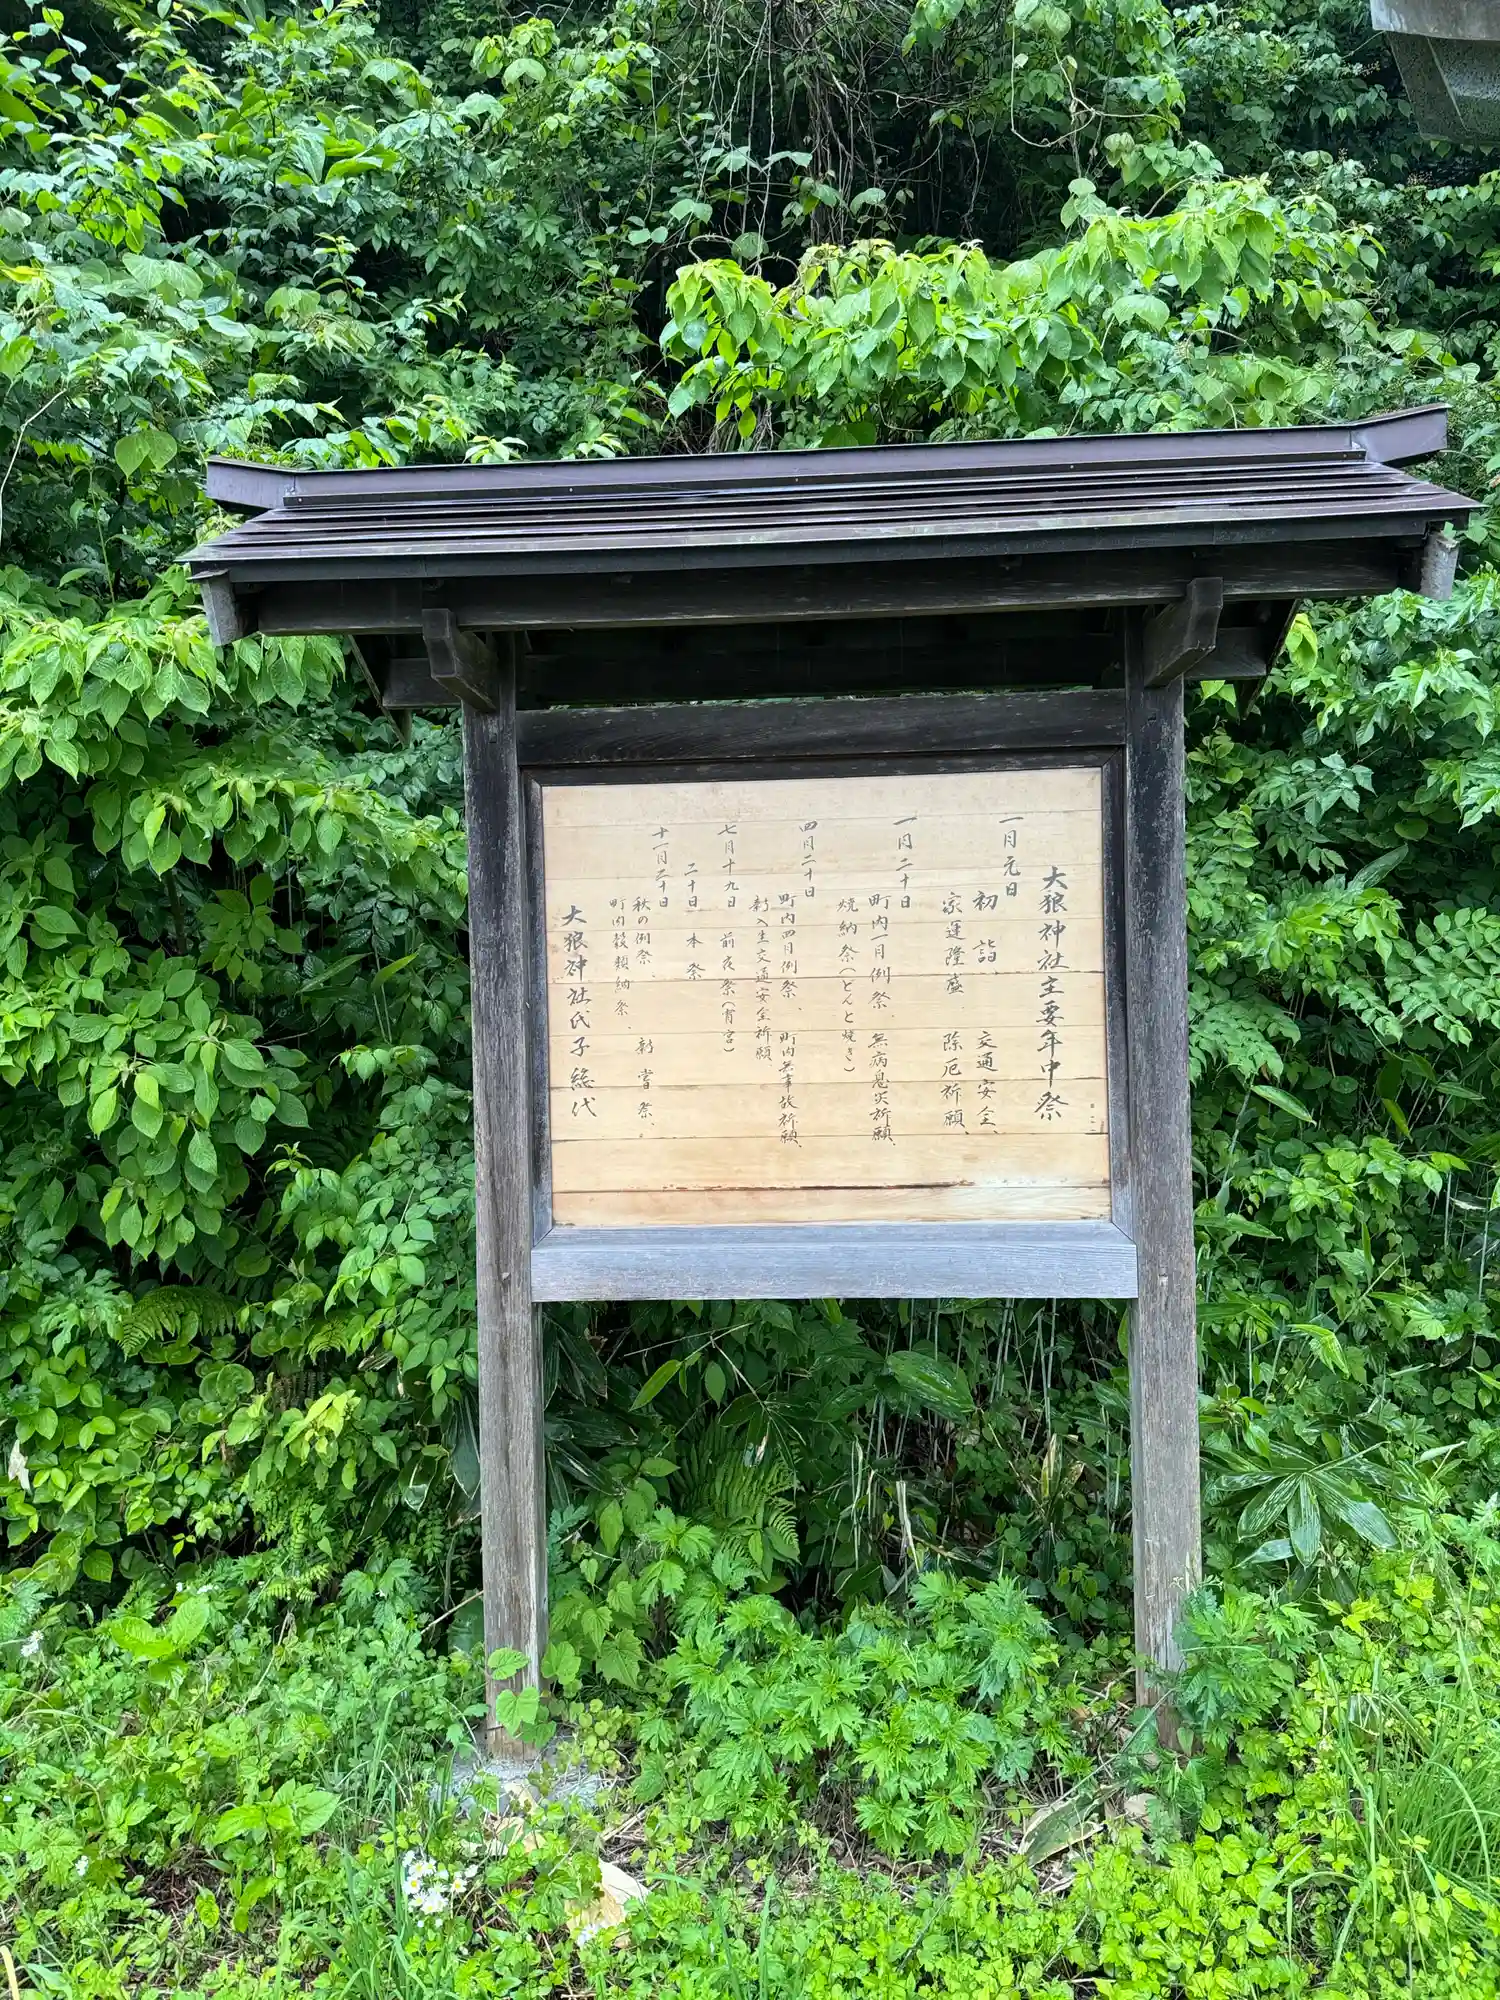 大狼神社主要年中祭
一月元日
初詣 交通安全、
家運隆盛 除厄祈願、
一月二十日
町内一月例祭、無病息災祈願、
焼納祭(どんと焼き)
四月二十日
町内四月例祭、町内無事故祈願、
新入生交通安全祈願、
七月十九日 前夜祭(宵宮)
二十日 本祭
十一月二十日
秋の例祭、新嘗祭、
町内穀類納祭、
大狼神社氏子総代